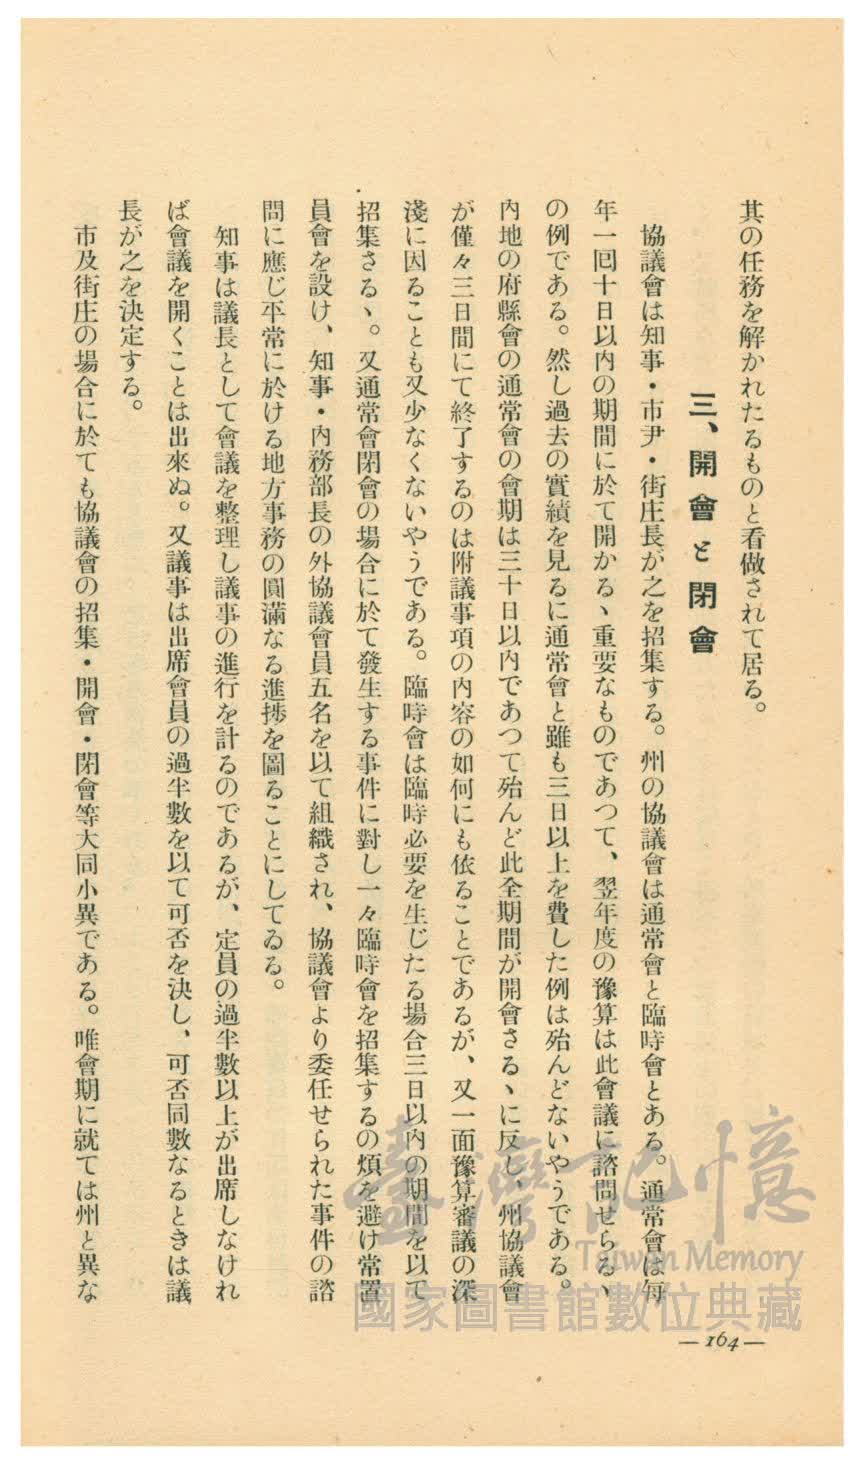 其の任務を解かれたるものと看做されて居る。
三、開會と閉會
協議會は知事・市尹・街庄長が之を招集する。州の協議會は通常會と臨時會とある。通常會は每
年一囘十日以內の期間に於て開かるヽ重要なものであつて、翌年度の豫算は此會議に諮問せらるヽ
の例である。然し過去の實績を見るに通常會と雖も三日以上を費した例は殆んどないやうである。
內地の府縣會の通常會の會期は三十日以內であつて殆んど此全期間が開會さるヽに反し、州協議會
が僅々三日間にて終了するのは附議事項の內容の如何にも依ることであるが、又一面豫算審議の深
淺に因ることも又少なくないやうである。臨時會は臨時必要を生じたる場合三日以內の期間を以て
招集さるヽ。又通常會閉會の場合に於て發生する事件に對し一々臨時會を招集するの煩を避け常置
員會を設け、知事・內務部長の外協議會員五名を以て組織され、協議會より委任せられた事件の諮
問に應じ平常に於ける地方事務の圓滿なる進捗を圖ることにしてゐる。
知事は議長として會議を整理し議事の進行を計るのであるが、定員の過半數以上が出席しなけれ
ば會議を開くことは出來ぬ。又議事は出席會員の過半數を以て可否を決し、可否同數なるときは議
長が之を決定する。
市及街庄の場合に於ても協議會の招集・開會・閉會等大同小異である。唯會期に就ては州と異な
— 164 —
臺灣記憶
Taiwan Memory
國家圖書館數位典藏